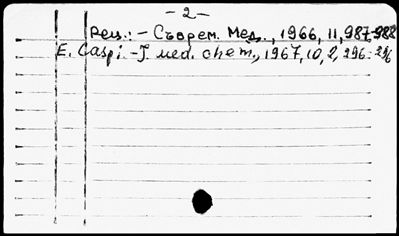 -2-
Рец.: - Съврем. Мед., 1966, 11, 987-988
E. Caspi - J. med. chem., 1967, 10, 2, 296-296